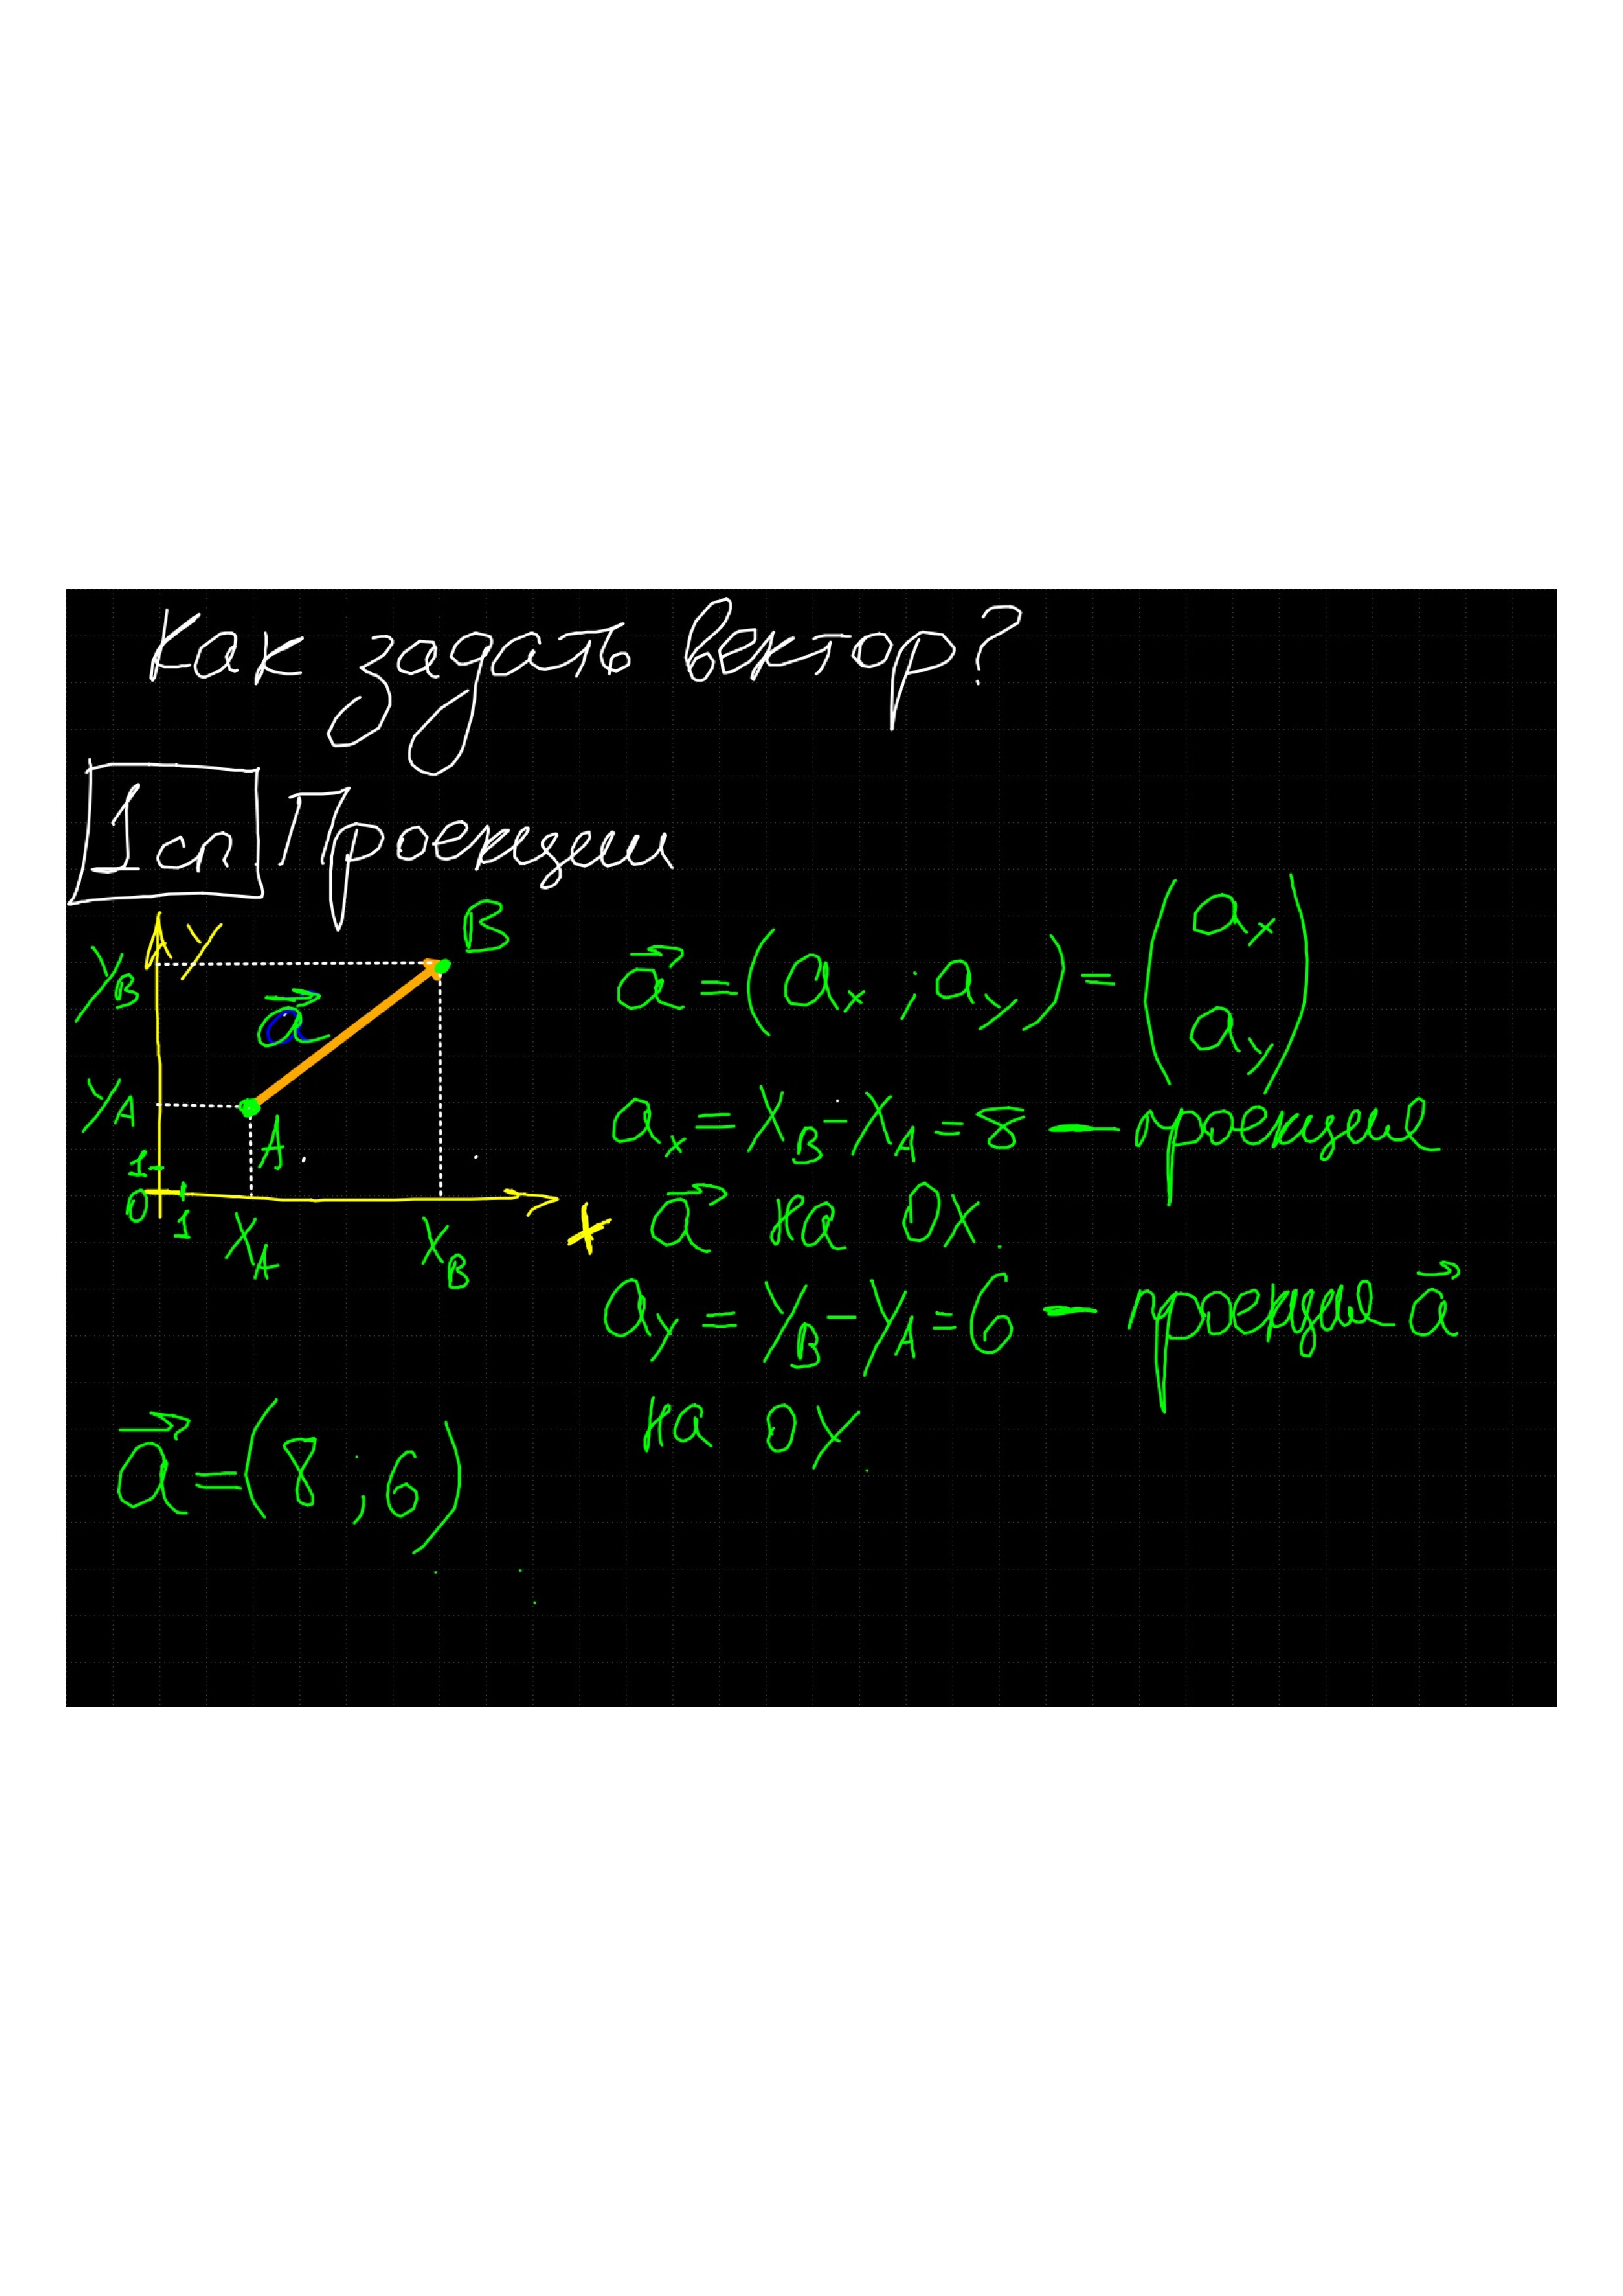 Как задать вектор?
1сп Проекции
Y
B
Y_B
a⃗
Y_A
A
1
0
1
X_A
X_B
X
a⃗ = (a_x ; a_y) = (a_x a_y)
a_x = X_B - X_A = 8 — проекция
a⃗ на OX.
a_y = Y_B - Y_A = 6 — проекция a⃗
на OY.
a⃗ = (8 ; 6)